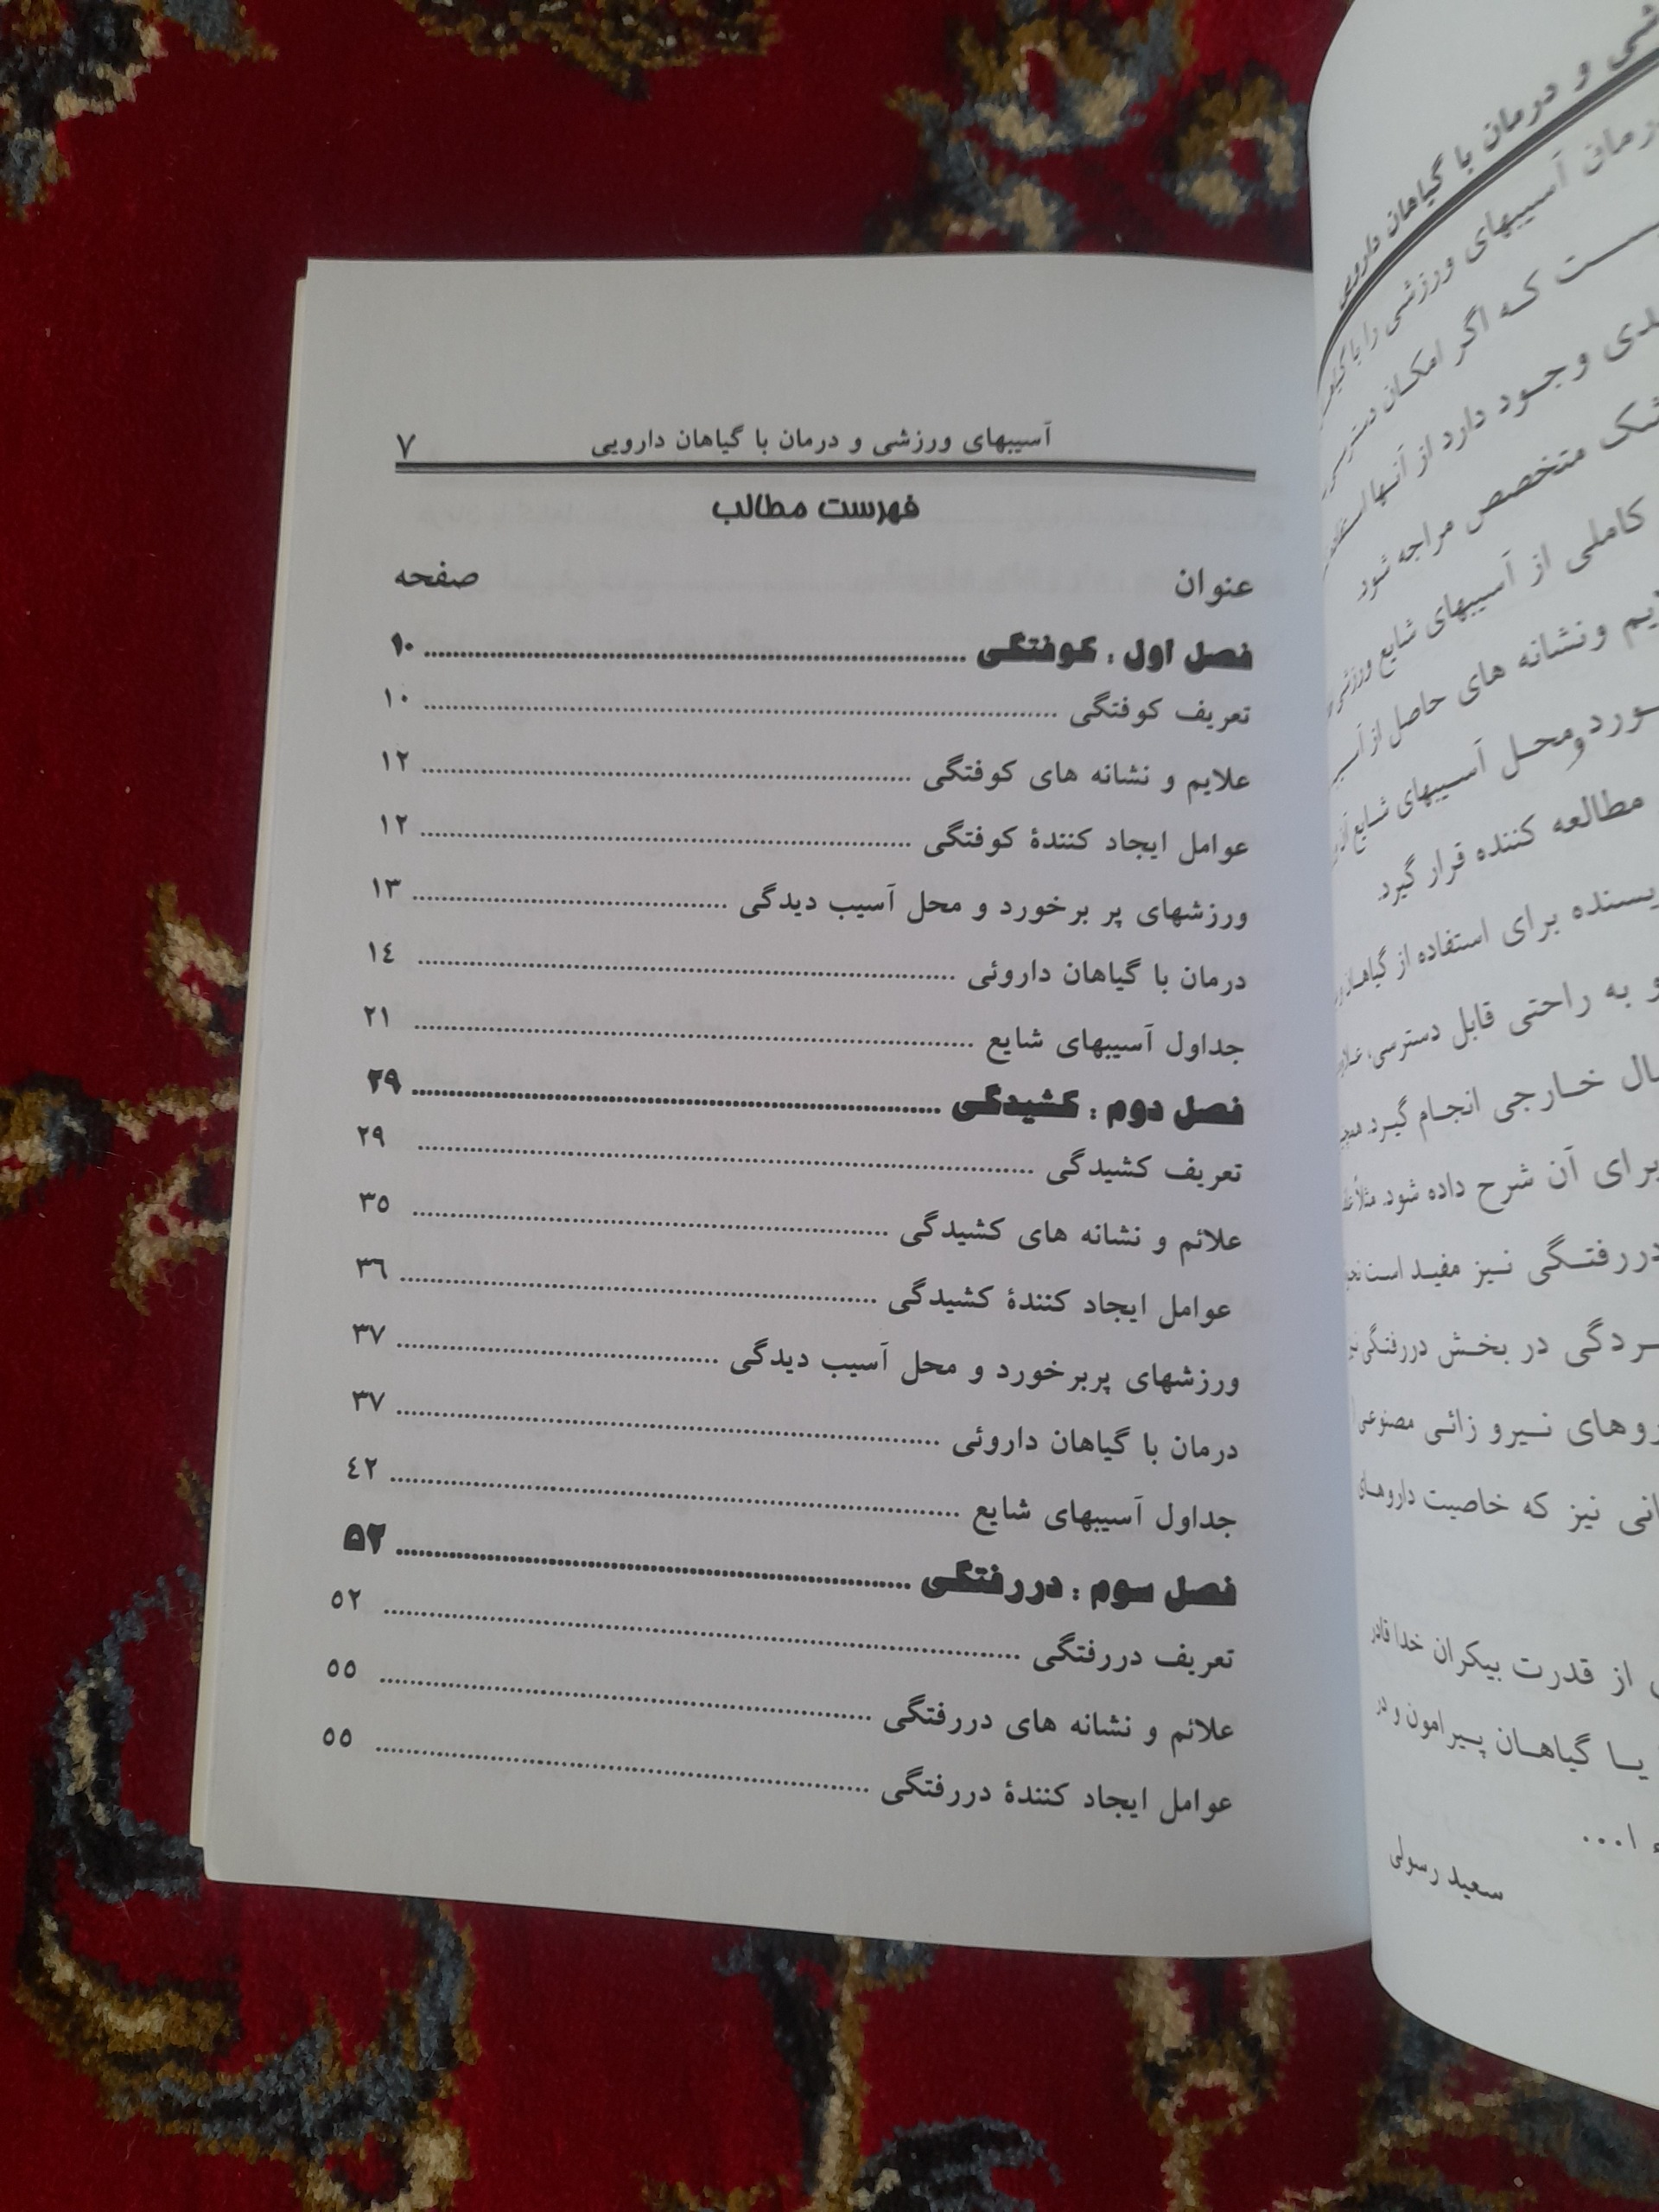 آسیبهای ورزشی و درمان با گیاهان دارویی ۷
فهرست مطالب
عنوان صفحه
فصل اول : کوفتگی ........ ۱۰
تعریف کوفتگی ........ ۱۰
علایم و نشانه های کوفتگی ........ ۱۲
عوامل ایجاد کنندهٔ کوفتگی ........ ۱۲
ورزشهای پر برخورد و محل آسیب دیدگی ........ ۱۳
درمان با گیاهان داروئی ........ ۱٤
جداول آسیبهای شایع ........ ۲۱
فصل دوم : کشیدگی ........ ۲۹
تعریف کشیدگی ........ ۲۹
علائم و نشانه های کشیدگی ........ ۳٥
عوامل ایجاد کنندهٔ کشیدگی ........ ۳٦
ورزشهای پربرخورد و محل آسیب دیدگی ........ ۳۷
درمان با گیاهان داروئی ........ ۳۷
جداول آسیبهای شایع ........ ٤۲
فصل سوم : دررفتگی ........ ۵۲
تعریف دررفتگی ........ ٥۲
علائم و نشانه های دررفتگی ........ ٥٥
عوامل ایجاد کنندهٔ دررفتگی ........ ٥٥
و درمان با گیاهان دارویی
درمان آسیبهای ورزشی را با
ست که اگر امکان
وجود دارد از آنها استفاده
متخصص مراجه شود
کاملی از آسیبهای شایع ورزشی
ونشانه های حاصل از
ومحل آسیبهای شایع
مطالعه کننده قرار گیرد.
برای استفاده از
و به راحتی قابل دسترسی،
خارجی انجام گیرد.
برای آن شرح داده شود. مثلاً
دررفتگی نیز مفید است
در بخش دررفتگی
نیرو زائی مصنوعی
نیز که خاصیت داروهای
از قدرت بیکران خدا قادر
یا گیاهان پیرامون و در
ا...
سعید رسولی